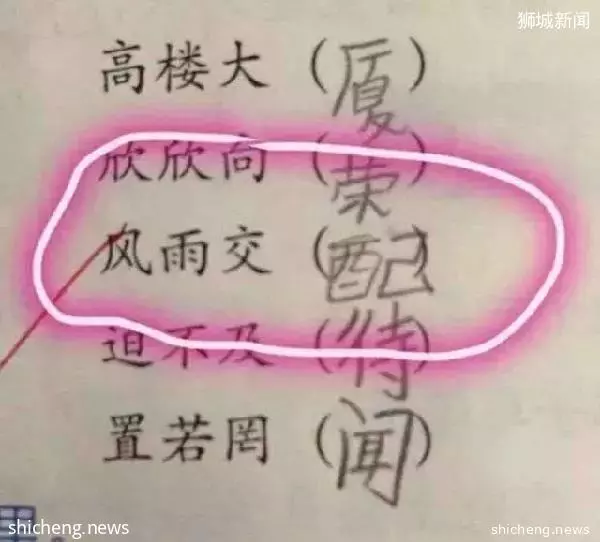 狮城新闻
高楼大（厦）
欣欣向（荣）
风雨交（配）
迫不及（待）
置若罔（闻）
shicheng.news
shicheng.news